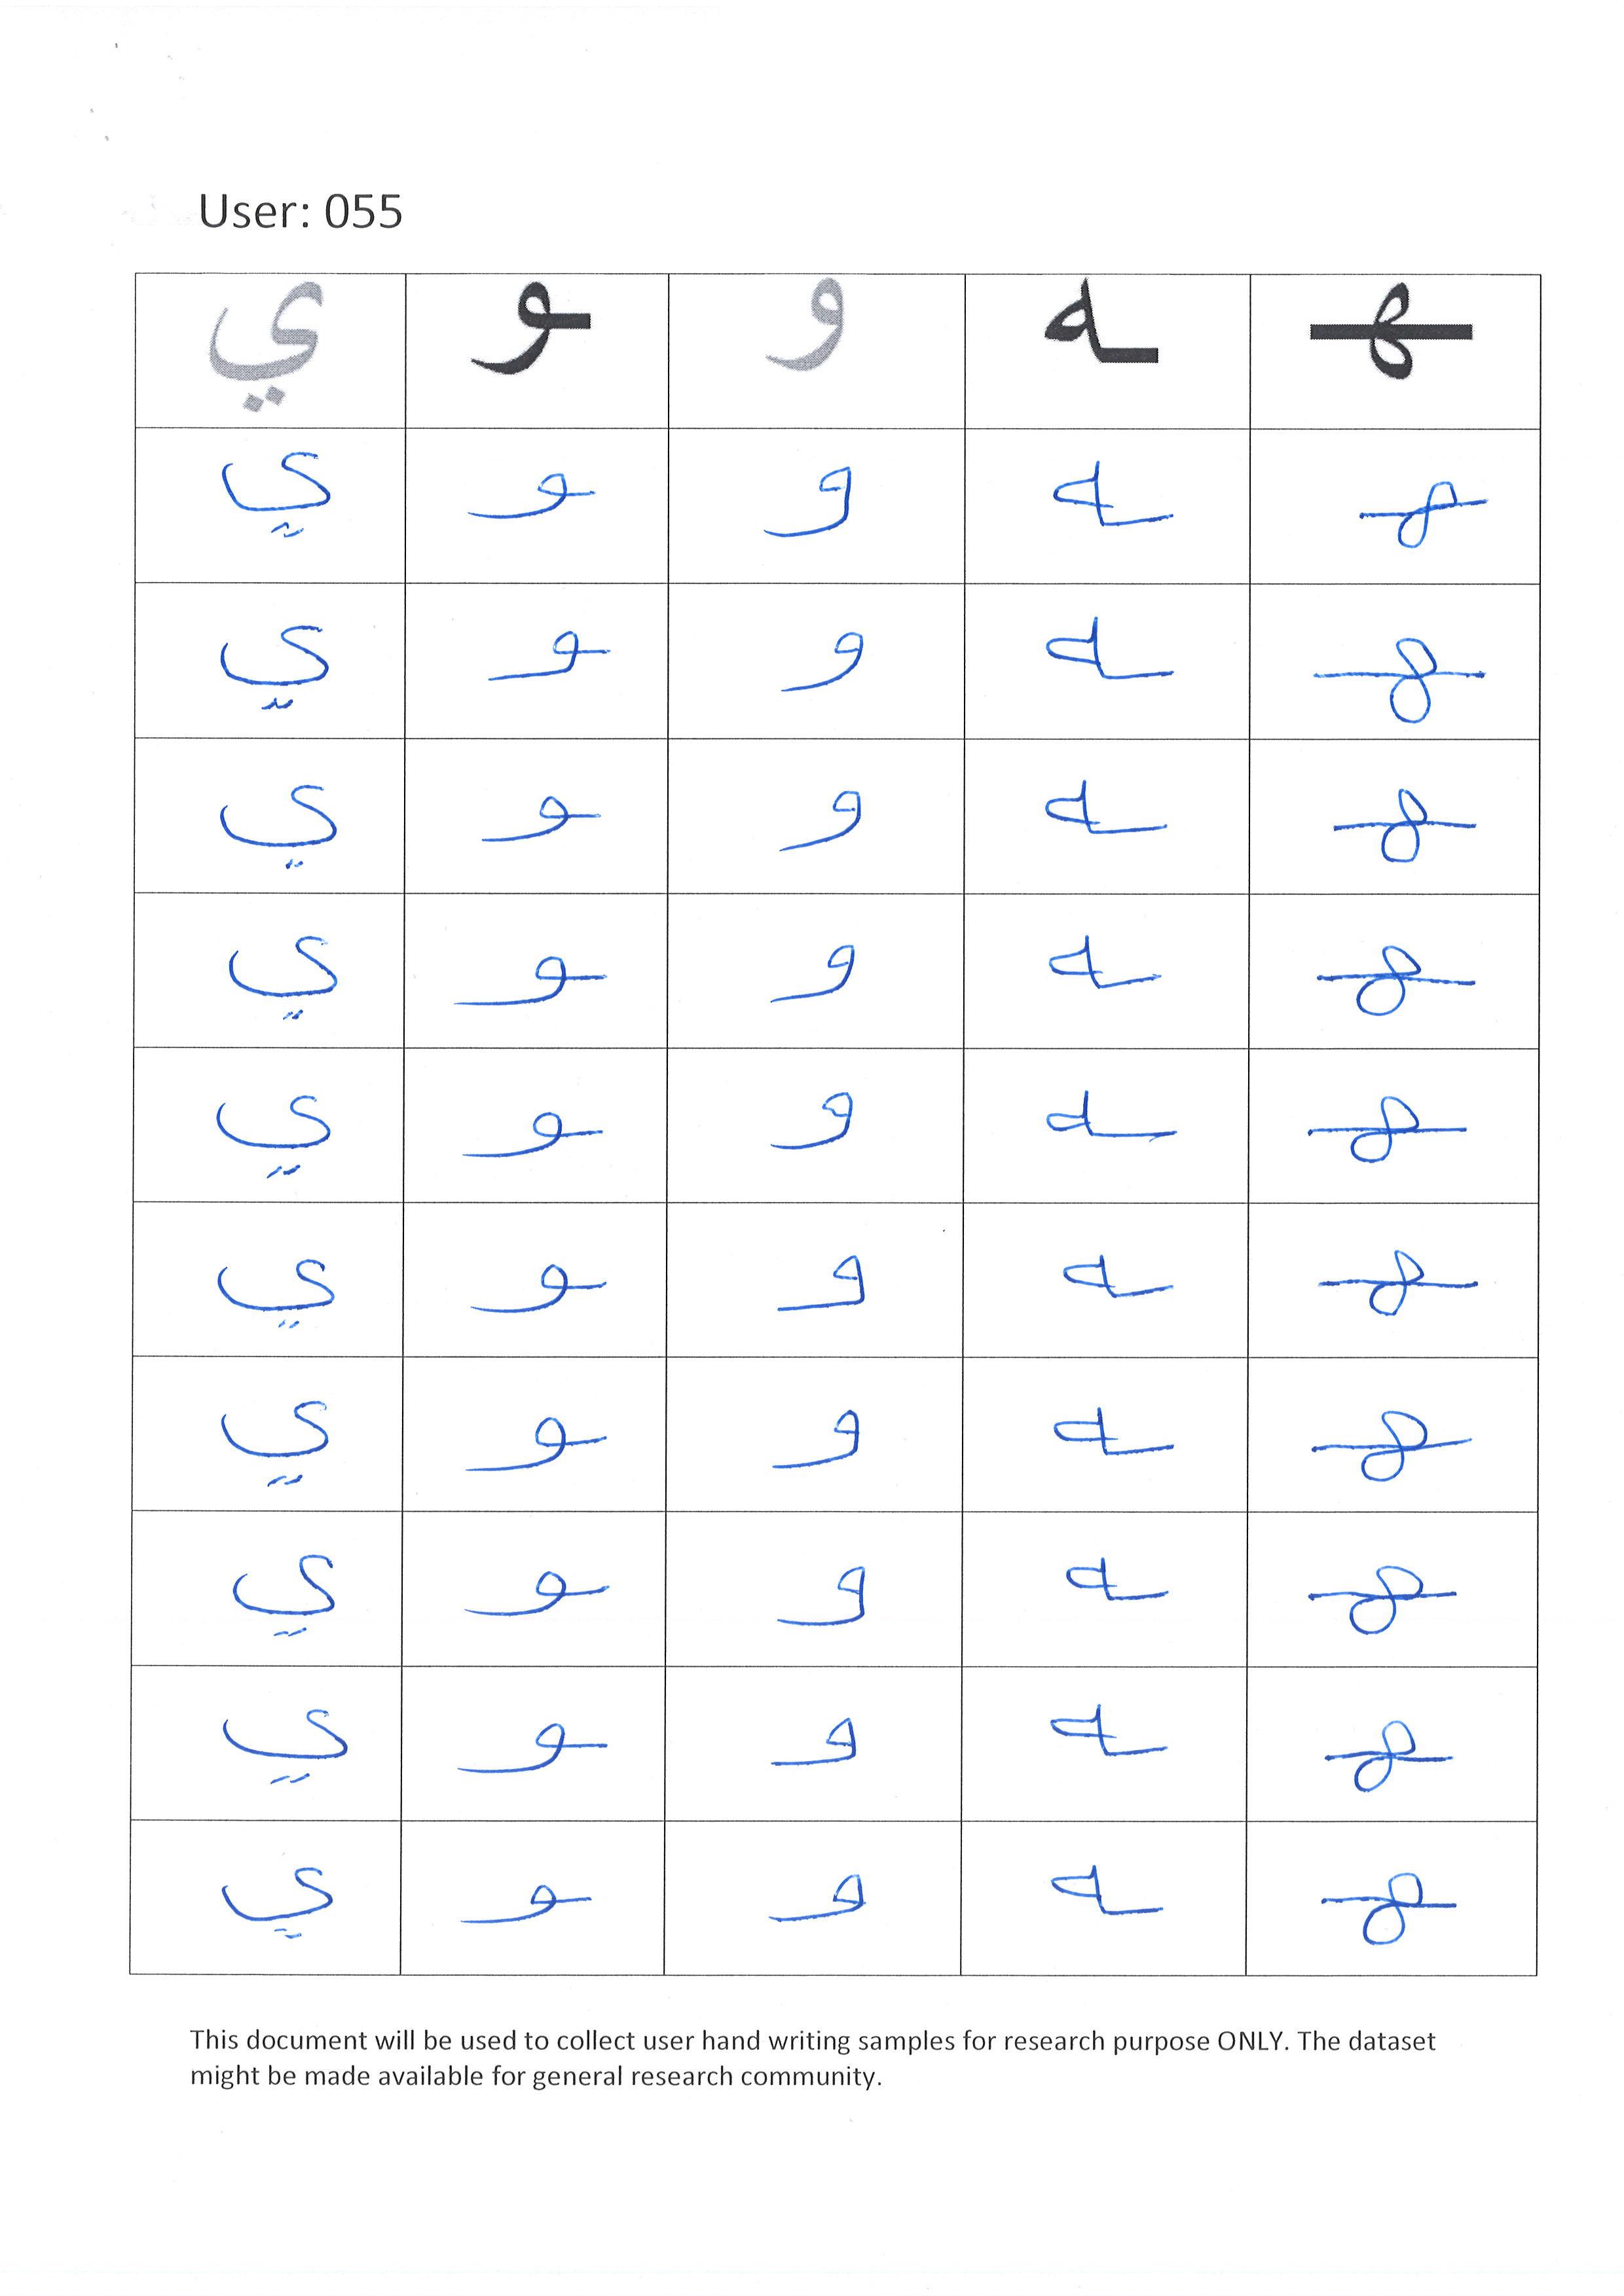 User: 055
ي ـو و ـه ـهـ
ي ـو و ـه ـهـ
ي ـو و ـه ـهـ
ي ـو و ـه ـهـ
ي ـو و ـه ـهـ
ي ـو و ـه ـهـ
ي ـو و ـه ـهـ
ي ـو و ـه ـهـ
ي ـو و ـه ـهـ
ي ـو و ـه ـهـ
ي ـو و ـه ـهـ
This document will be used to collect user hand writing samples for research purpose ONLY. The dataset
might be made available for general research community.